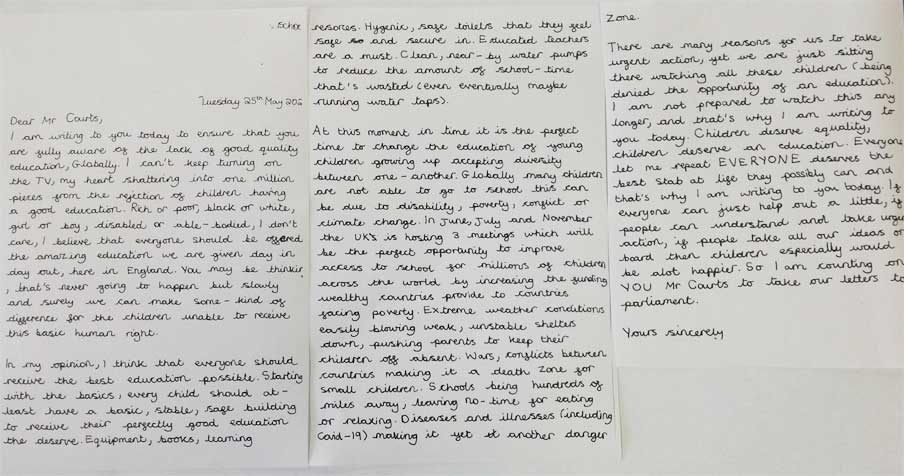 School
Tuesday 25th May 202
Dear Mr Courts,
I am writing to you today to ensure that you
are fully aware of the lack of good quality
education, Globally. I can't keep turning on
the TV, my heart shattering into one million
pieces from the rejection of children having
a good education. Rich or poor, black or white,
girl or boy, disabled or able-bodied, I don't
care, I believe that everyone should be offered
the amazing education we are given day in
day out, here in England. You may be thinkin
, that's never going to happen but slowly
and surely we can make some-kind of
difference for the children unable to receive
this basic human right.
In my opinion, I think that everyone should
receive the best education possible. Starting
with the basics, every child should at-
least have a basic, stable, safe building
to receive their perfectly good education
the deserve. Equipment, books, learning
resorces. Hygenic, safe toilets that they feel
safe so and secure in. Educated teachers
are a must. Clean, near-by water pumps
to reduce the amount of school-time
that's wasted (even eventually maybe
running water taps).
At this moment in time it is the perfect
time to change the education of young
children growing up accepting diversity
between one-another. Globally many children
are not able to go to school this can
be due to disability, poverty, conflict or
climate change. In June, July and November
the UK's is hosting 3 meetings which will
be the perfect opportunity to improve
access to school for millions of children
across the world by increasing the funding
wealthy countries provide to countries
facing poverty. Extreme weather conditions
easily blowing weak, unstable shelters
down, pushing parents to keep their
children off absent. Wars, conflicts between
countries making it a death zone for
small children. Schools being hundreds of
miles away, leaving no-time for eating
or relaxing. Diseases and illnesses (including
Covid-19) making it yet another danger
Zone.
There are many reasons for us to take
urgent action, yet we are just sitting
there watching all these children (being
denied the opportunity of an education).
I am not prepared to watch this any
longer, and that's why I am writing to
you today. Children deserve equality,
children deserve an education. Everyone
let me repeat EVERYONE deserves the
best stab at life they possibly can and
that's why I am writing to you today. If
everyone can just help out a little, if
people can understand and take urge
action, if people take all our ideas on
board then children especially would
be alot happier. So I am counting on
YOU Mr Courts to take our letters to
parliament.
Yours sincerely